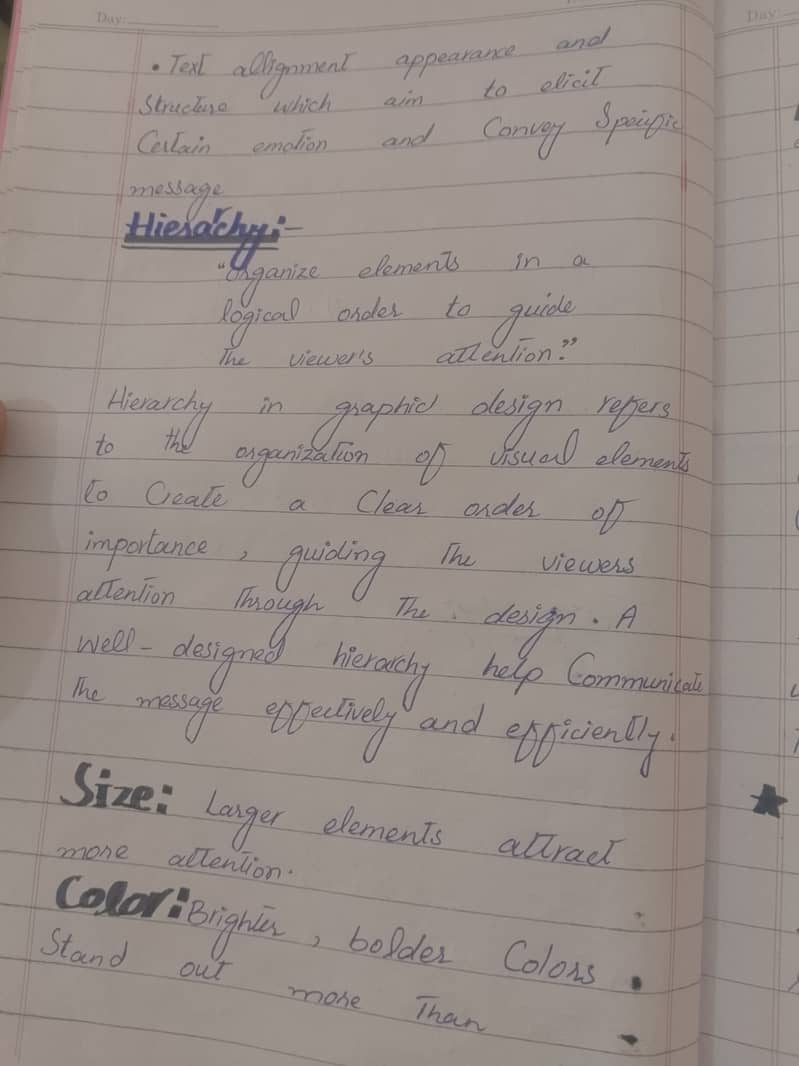 Day:
• Text allignment appearance and
Structure which aim to elicit
Certain emotion and Convey Specific
message
Hierarchy:-
"Organize elements in a
logical order to guide
The viewer's attention."
Hierarchy in graphic design refers
to the organization of visual elements
to Create a Clear order of
importance, guiding The viewers
attention Through The design. A
well-designed hierarchy help Communicate
The message effectively and efficiently.
Size: Larger elements attract
more attention.
Color: Brighter, bolder Colors
Stand out more Than
Day: